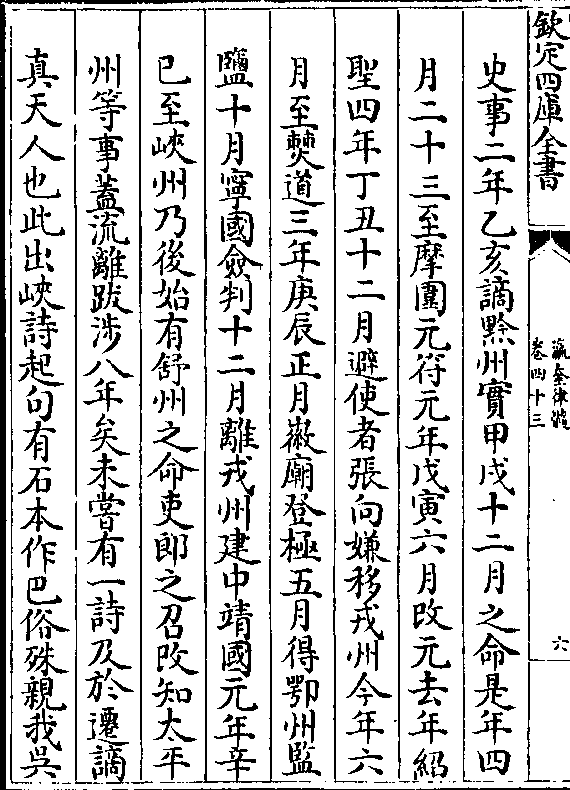 欽定四庫全書
瀛奎律髓
卷四十三
六
史事二年乙亥謫黔州實甲戌十二月之命是年四
月二十三至摩圍元符元年戊寅六月改元去年紹
聖四年丁丑十二月避使者張向嫌移戎州今年六
月至僰道三年庚辰正月徽廟登極五月得鄂州監
鹽十月寧國僉判十二月離戎州建中靖國元年辛
巳至峽州乃後始有舒州之命吏郎之召改知太平
州等事蓋流離跋涉八年矣未嘗有一詩及於遷謫
真天人也此出峽詩起句有石本作巴俗殊親我吳